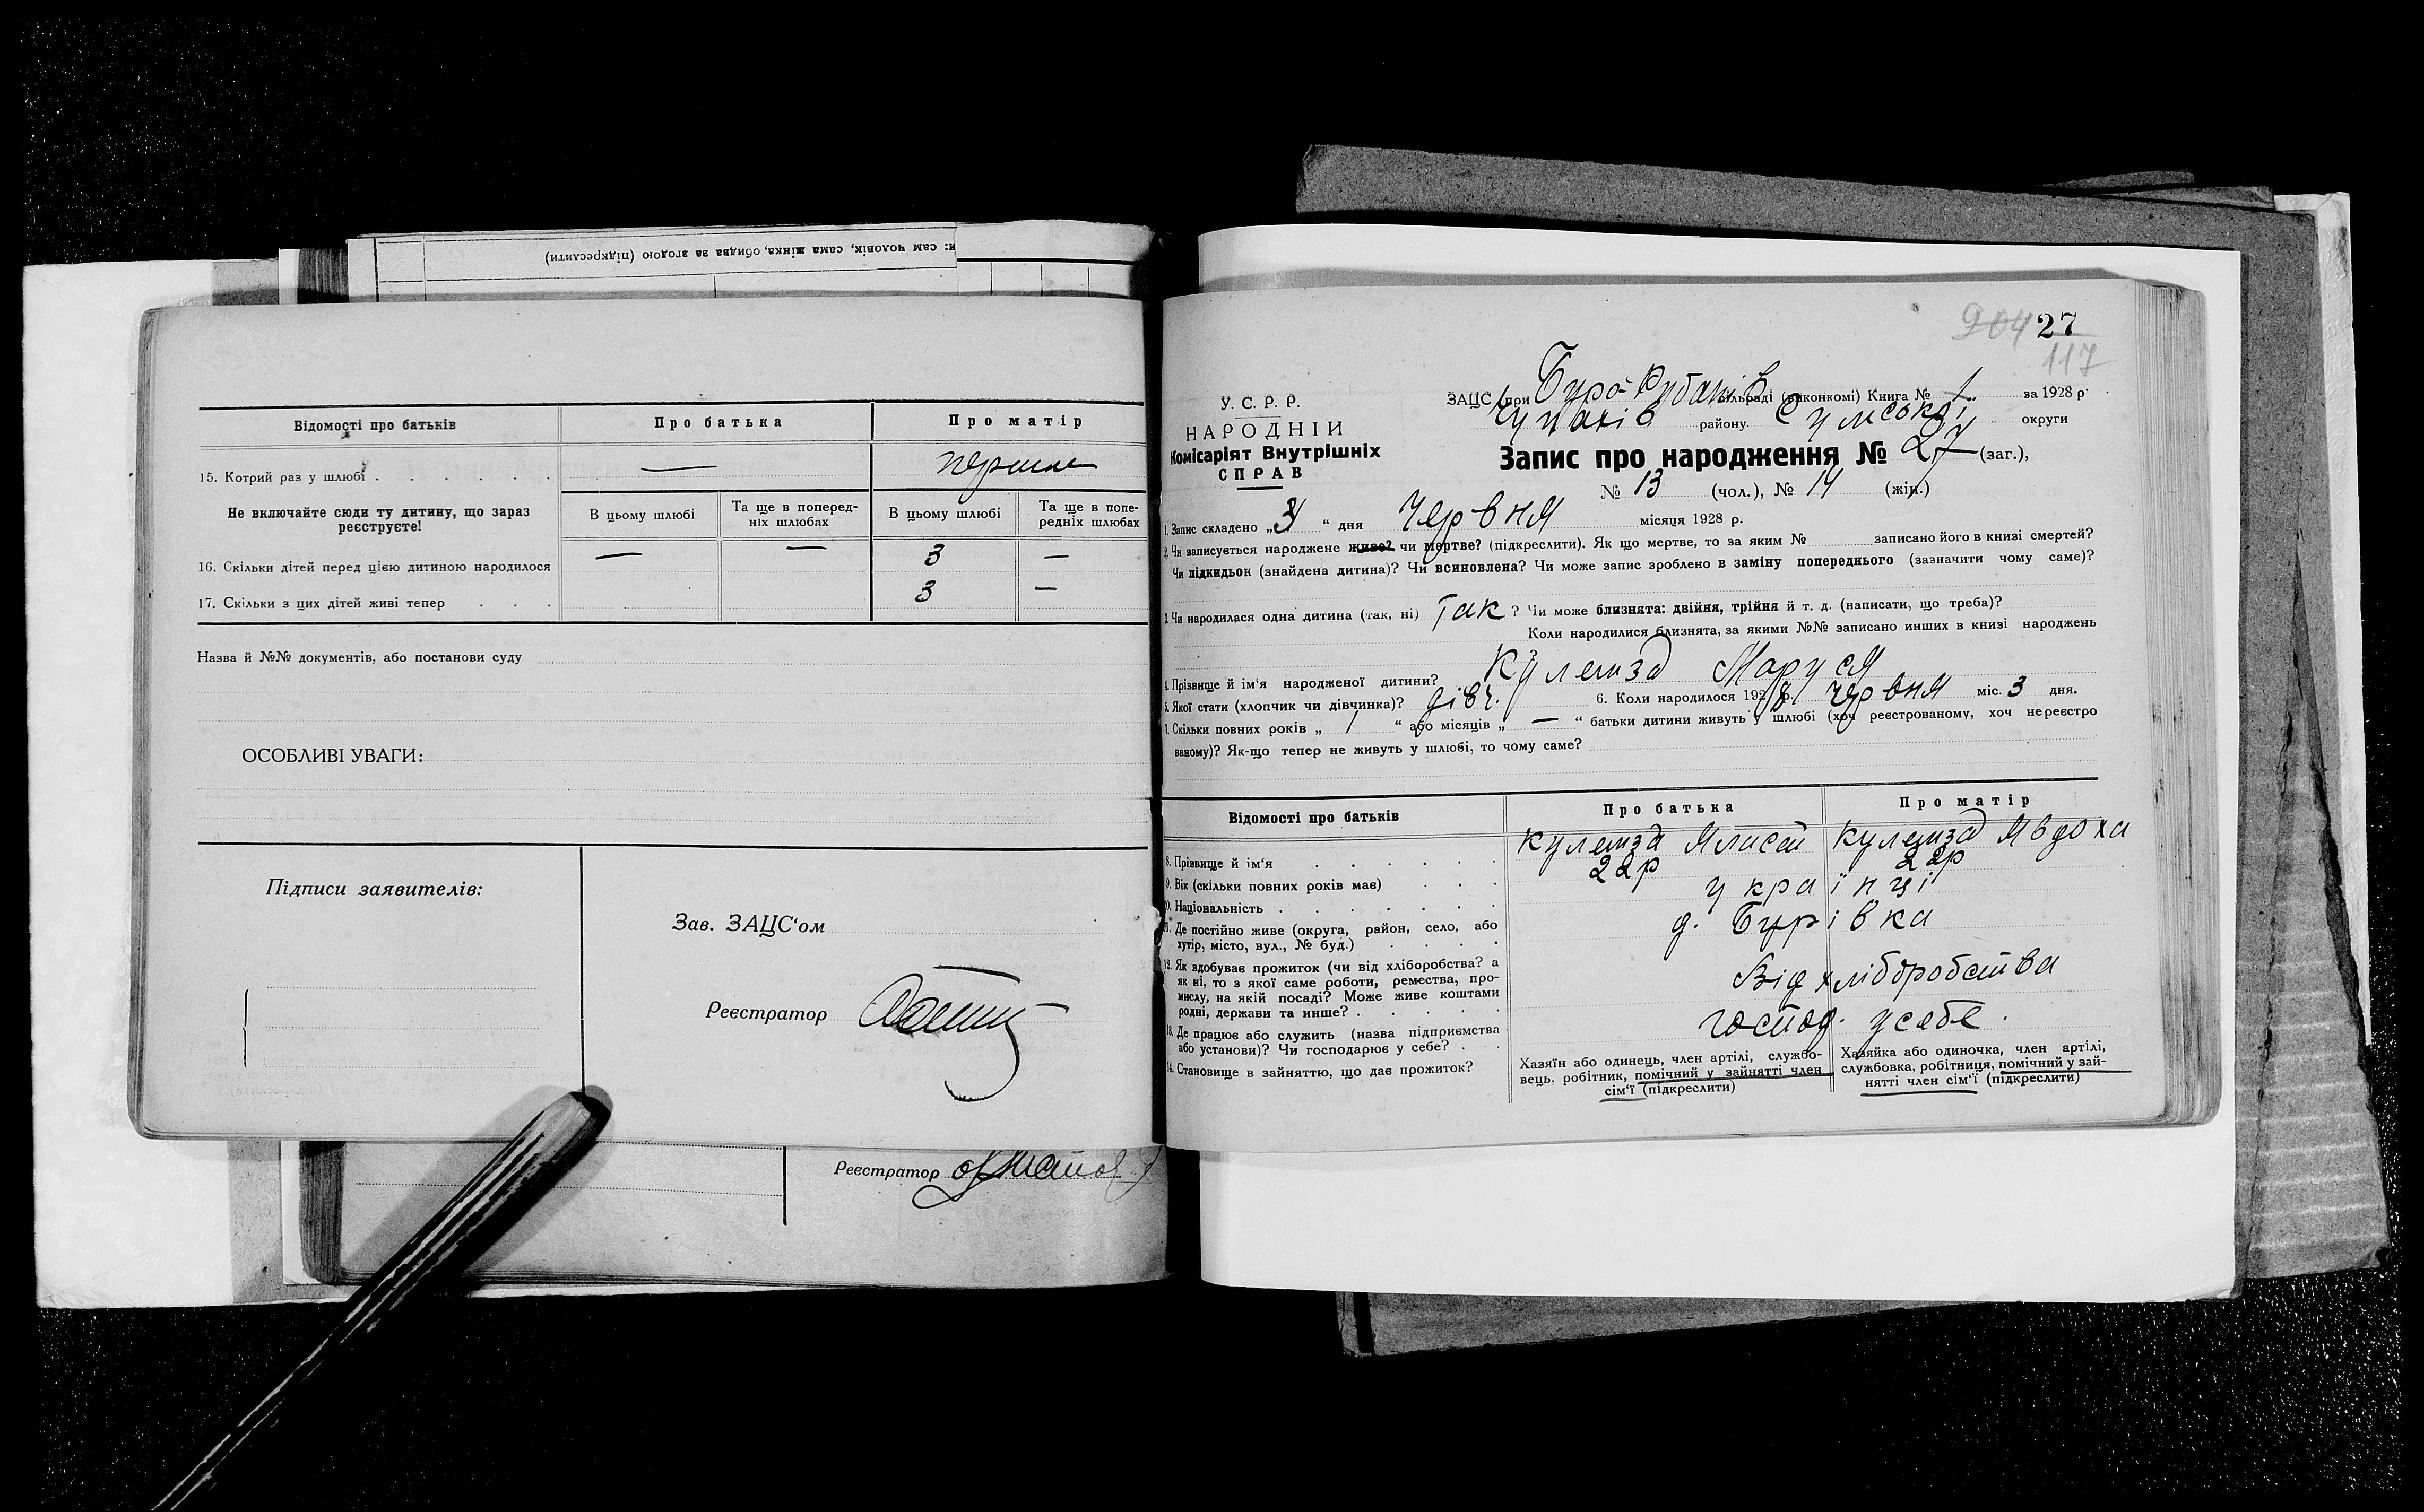 и: сам чоловік, сама жінка, обидва за згодою (підкреслити)
Відомості про батьків
Про батька
Про матір
15. Котрий раз у шлюбі . . . . . .
—
перше
Не включайте сюди ту дитину, що зараз реєструєте!
В цьому шлюбі
Та ще в поперед-
ніх шлюбах
В цьому шлюбі
Та ще в попе-
редніх шлюбах
16. Скільки дітей перед цією дитиною народилося
— — 3 —
17. Скільки з цих дітей живі тепер . . .
3 —
Назва й №№ документів, або постанови суду
ОСОБЛИВІ УВАГИ:
Підписи заявителів:
Зав. ЗАЦС'ом
Реєстратор
Реєстратор
904 27
117
У. С. Р. Р.
НАРОДНІЙ
Комісаріят Внутрішніх
СПРАВ
ЗАЦС при Буро-Рубанів сільраді (виконкомі) Книга № 1 за 1928 р.
Чупахів району Сумської округи
Запис про народження № 27 (заг.),
№ 13 (чол.), № 14 (жін.)
1. Запис складено „ “ дня Червня місяця 1928 р.
2. Чи записується народжене живе? чи мертве? (підкреслити). Як що мертве, то за яким № записано його в книзі смертей?
Чи підкидьок (знайдена дитина)? Чи всиновлена? Чи може запис зроблено в заміну попереднього (зазначити чому саме)?
3. Чи народилася одна дитина (так, ні) Так ? Чи може близнята: двійня, трійня й т. д. (написати, що треба)?
Коли народилися близнята, за якими №№ записано инших в книзі народжень
4. Прізвище й ім'я народженої дитини? Кулемза Маруся
5. Якої стати (хлопчик чи дівчинка)? дівч. 6. Коли народилося 1928 р. червня міс. 3 дня.
7. Скільки повних років „ 1 “ або місяців „ — “ батьки дитини живуть у шлюбі (хоч реєстрованому, хоч нереєстро
ваному)? Як-що тепер не живуть у шлюбі, то чому саме?
Відомості про батьків
Про батька
Про матір
8. Прізвище й ім'я . . . . . .
Кулемза Кулемза Явдоха
9. Вік (скільки повних років має) . . .
22р 22р
10. Національність . . . . . . .
українці
11. Де постійно живе (округа, район, село, або
хутір, місто, вул., № буд.) . . . .
д. Бурівка
12. Як здобуває прожиток (чи від хліборобства? а
як ні, то з якої саме роботи, ремества, про-
мислу, на якій посаді? Може живе коштами
родні, держави та инше? . . . . .
Від хліборобства
13. Де працює або служить (назва підприємства
або установи)? Чи господарює у себе? . .
господ. у себе.
14. Становище в зайняттю, що дає прожиток?
Хазяїн або одинець, член артілі, службо-
вець, робітник, помічний у зайнятті член
сім'ї (підкреслити)
Хазяйка або одиночка, член артілі,
службовка, робітниця, помічний у зай-
нятті член сім'ї (підкреслити)